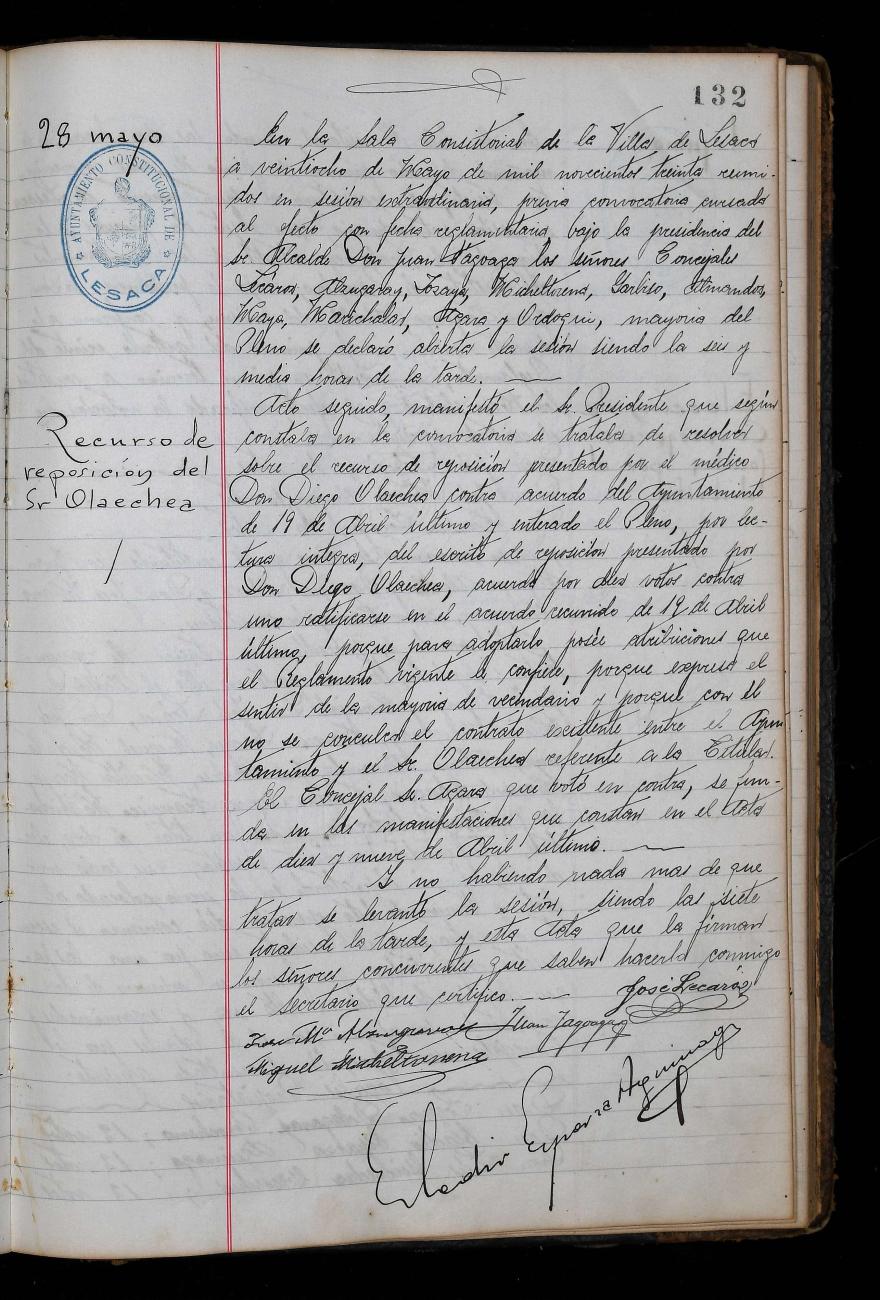 132
28 mayo
AYUNTAMIENTO CONSTITUCIONAL DE
LESACA
En la Sala Consistorial de la Villa de Lesaca
a veintiocho de Mayo de mil novecientos treinta reuni-
dos en sesión extraordinaria, previa convocatoria cursada
al efecto con fecha reglamentaria, bajo la presidencia del
Sr. Alcalde Don Juan Tagoaga los señores Concejales
Lecaroz, Alzugaray, Iozaya, Micheltorena, Garbiso, Almandoz,
Maya, Marichalar, Açara y Ordoqui, mayoria del
Pleno se declaró abierta la sesión siendo la seis y
media horas de la tarde.
Recurso de
reposición del
Sr Olaechea
Acto seguido, manifestó el Sr. Presidente que según
constaba en la convocatoria se trataba de resolver
sobre el recurso de reposición presentado por el médico
Don Diego Olaechea contra acuerdo del Ayuntamiento
de 19 de Abril último y enterado el Pleno, por lec-
tura integra, del escrito de reposición presentado por
Don Diego Olaechea, acuerda por diez votos contra
uno ratificarse en el acuerdo recurrido de 19 de Abril
último, porque para adoptarlo posée atribiciones que
el Reglamento vigente le confiere, porque expresa el
sentir de la mayoria de vecindario y porque con el
no se conculca el contrato existente entre el Ayun
tamiento y el Sr. Olaechea referente a la Titular.
El Concejal Sr. Açara que votó en contra, se fun-
da en las manifestaciones que constan en el Acta
de diez y nueve de Abril último.
Y no habiendo nada mas de que
tratar se levantó la sesión, siendo las siete
horas de la tarde, y esta Acta que la firman
los señores concurrentes que saben hacerlo conmigo
el secretario que certifico.
José Lecaroz
José Mª Alzugaray
Juan Tagoaga
Miguel Micheltorena
Eladio Esparza Aguinaga